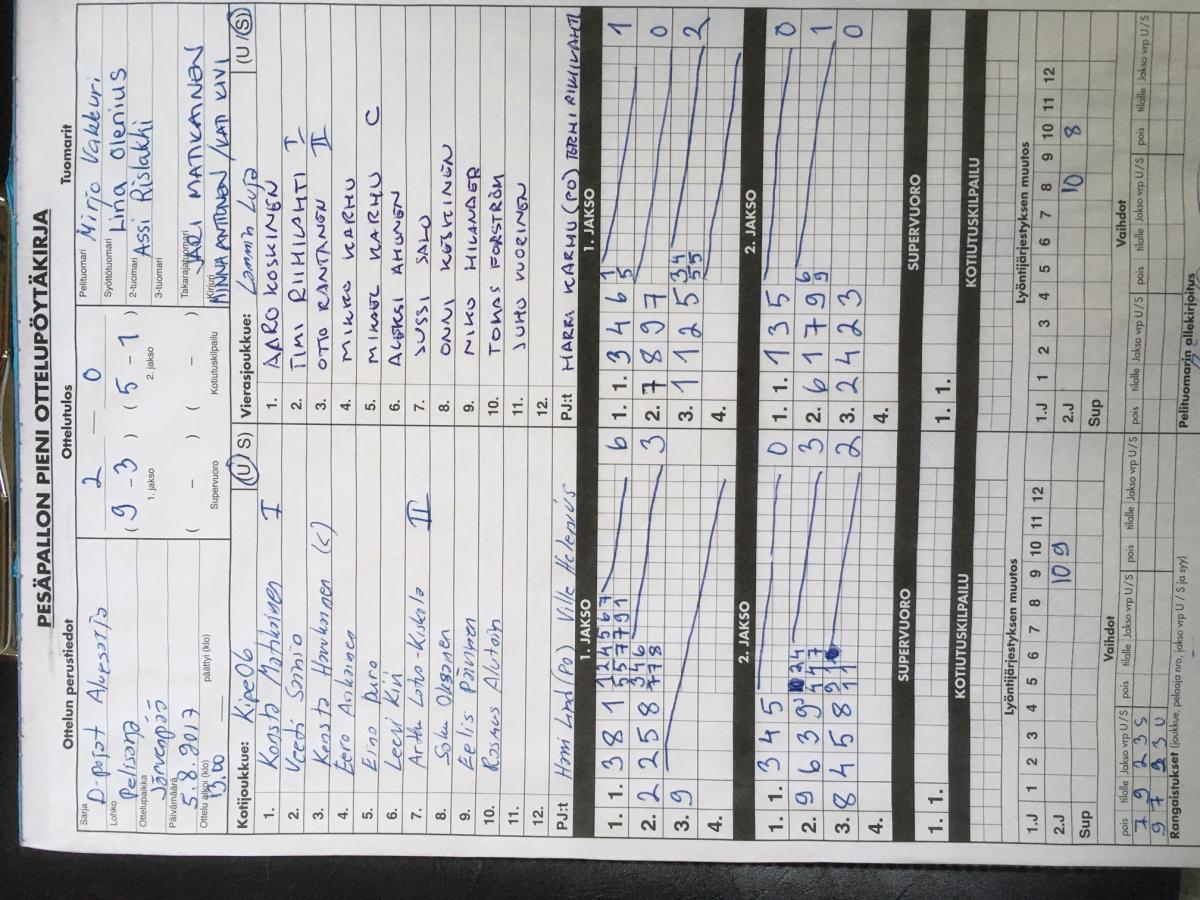 PESÄPALLON PIENI OTTELUPÖYTÄKIRJA
Ottelun perustiedot
Ottelutulos
Tuomarit
Sarja
D-pojat Aluesarja
Lohko
Ottelupaikka
Järvenpää
Päivämäärä
5.8.2017
Ottelu alkoi (klo)
13.00
päättyi (klo)
2 — 0
(9 - 3) (5 - 1)
1. jakso
2. jakso
( - ) ( - )
Supervuoro
Kotiutuskilpailu
Pelituomari
Mirjo Vakkuri
Syöttötuomari
Lina Olenius
2-tuomari
Assi Rislakki
3-tuomari
Takarajatuomari
JARI MATIKAINEN
Kirjuri
MINNA ANTTONEN / KATI KIVI
Kotijoukkue: Kipe06 (U / S)
1. Konsta Matikainen I
2. Veeti Sarnio
3. Konsta Haukonen (C)
4. Eero Asikainen
5. Eino Puro
6. Leevi Kivi
7. Arttu Loto-Kiskola II
8. Saku Oksanen
9. Eelis Päivinen
10. Rasmus
11.
12.
PJ:t Harri Lind (PO) Ville Helenius
Vierasjoukkue: Lammin Luja (U / S)
1. AARO KOSKINEN
2. TIMI RIIHILAHTI I
3. OTTO RANTANEN II
4. MIKKO KARHU
5. MIKAEL KARHU C
6. ALEKSI AHONEN
7. JUSSI SALO
8. ONNI KOSKINEN
9. NIKO HILANDER
10. TOMAS FORSSTRÖM
11. JUHO VUORINEN
12.
PJ:t HARRI KARHU (PO) TERHI RIIHILAHTI
1. JAKSO
1. 1. 3 8 1 5 6
2. 2 2 5 8 3
3. 9
4.
1. JAKSO
1. 1. 3 4 6 1
2. 7 8 9 7 0
3. 1 1 2 5 2
4.
2. JAKSO
1. 1. 3 4 5 0
2. 9 6 3 9 3
3. 8 4 5 8 2
4.
2. JAKSO
1. 1. 1 3 5 0
2. 6 1 7 9 1
3. 2 4 2 3 0
4.
SUPERVUORO
1. 1.
SUPERVUORO
1. 1.
KOTIUTUSKILPAILU
KOTIUTUSKILPAILU
Lyöntijärjestyksen muutos
1.J 1 2 3 4 5 6 7 8 9 10 11 12
2.J 10 9
Sup
Lyöntijärjestyksen muutos
1.J 1 2 3 4 5 6 7 8 9 10 11 12
2.J 10 8
Sup
Vaihdot
pois tilalle Jakso vrp U/S pois tilalle Jakso vrp U/S pois tilalle Jakso vrp U/S
7 9 2 3 S
9 7 2 3 U
Vaihdot
pois tilalle Jakso vrp U/S pois tilalle Jakso vrp U/S pois tilalle Jakso vrp U/S
Rangaistukset (joukkue, pelaaja nro, jakso, vrp U / S ja syy)
Pelituomarin allekirjoitus